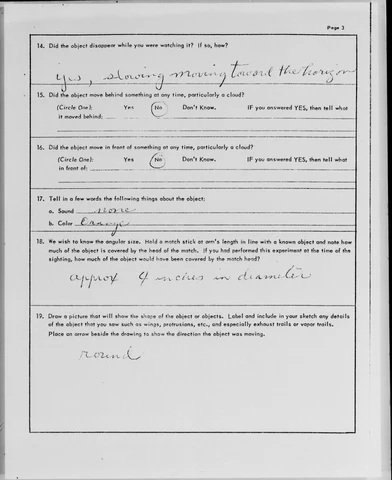 Page 3
14. Did the object disappear while you were watching it? If so, how?
yes, slowing moving toward the horizon
15. Did the object move behind something at any time, particularly a cloud?
(Circle One): Yes No Don't Know. IF you answered YES, then tell what
it moved behind:
16. Did the object move in front of something at any time, particularly a cloud?
(Circle One): Yes No Don't Know. IF you answered YES, then tell what
in front of:
17. Tell in a few words the following things about the object:
a. Sound none
b. Color Orange
18. We wish to know the angular size. Hold a match stick at arm's length in line with a known object and note how
much of the object is covered by the head of the match. If you had performed this experiment at the time of the
sighting, how much of the object would have been covered by the match head?
approx 4 inches in diameter
19. Draw a picture that will show the shape of the object or objects. Label and include in your sketch any details
of the object that you saw such as wings, protrusions, etc., and especially exhaust trails or vapor trails.
Place an arrow beside the drawing to show the direction the object was moving.
round